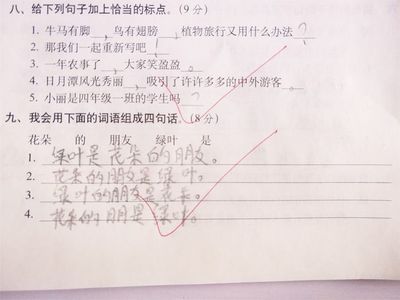 八、给下列句子加上恰当的标点。(9分)
1. 牛马有脚，鸟有翅膀，植物旅行又用什么办法？
2. 那我们一起重新写吧！
3. 一年农事了，大家笑盈盈。
4. 日月潭风光秀丽，吸引了许许多多的中外游客。
5. 小丽是四年级一班的学生吗？
九、我会用下面的词语组成四句话。(8分)
花朵 的 朋友 绿叶 是
1. 绿叶是花朵的朋友。
2. 花朵的朋友是绿叶。
3. 绿叶的朋友是花朵。
4. 花朵的朋是绿叶。